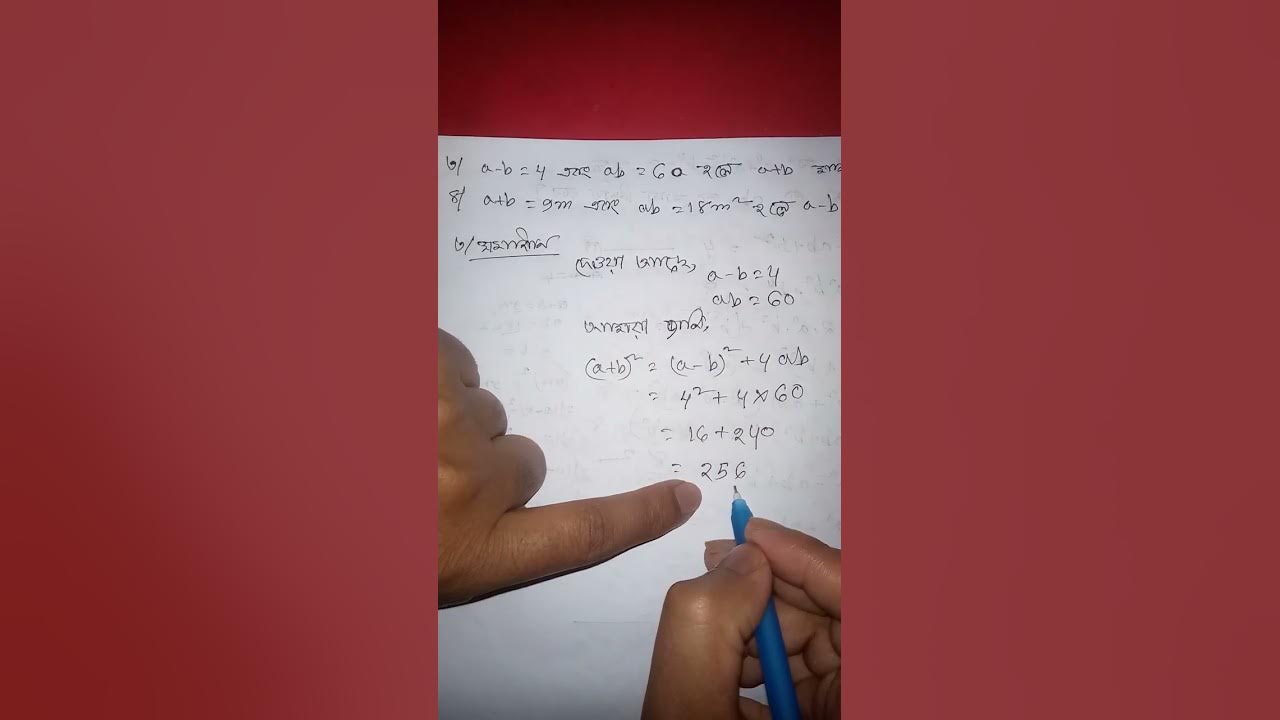 ৩/ a-b = 4 এবং ab = 60 হলে a+b
৪/ a+b = 9m এবং ab = 18m² হলে a-b
৩/ সমাধান
দেওয়া আছে, a-b = 4
ab = 60
আমরা জানি,
(a+b)² = (a-b)² + 4ab
= 4² + 4×60
= 16 + 240
= 256